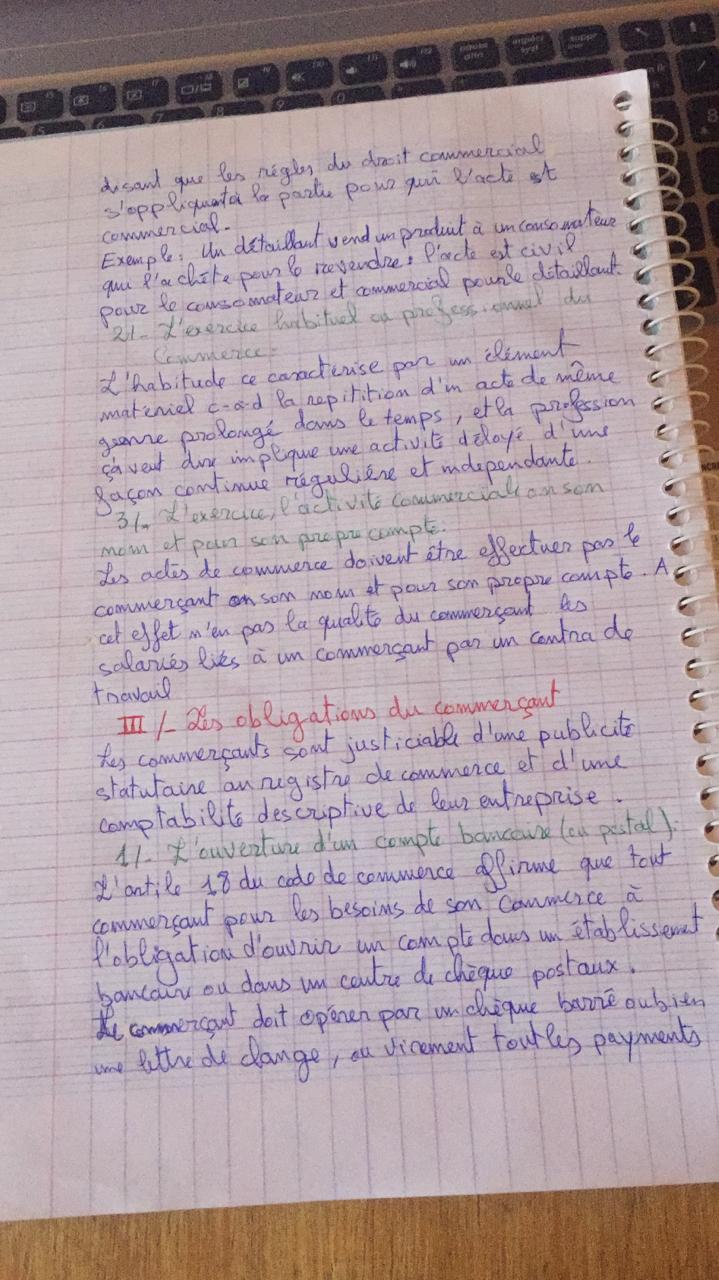 disant que les régles du droit commercial
s'appliquent à la partie pour qui l'acte est
commercial.
Exemple: Un détaillant vend un produit à un consomateur
qui l'achète pour le revendre: l'acte est civil
pour le consomateur et commercial pour le détaillant.
2/- L'exercice habituel ou professionnel du
Commerce:
L'habitude ce caractérise par un élément
matériel c-a-d la repitition d'un acte de même
genre prolongé dans le temps, et la profession
ça veut dire implique une activité déloyé d'une
façon continue régulière et independante.
3/- L'exercice, l'activité commerciale en son
nom et pour son propre compte.
Les actes de commerce doivent être effectuer pas le
commerçant en son nom et pour son propre compte. A
cet effet n'en pas la qualité du commerçant les
salariés liés à un commerçant par un contra de
travail
III /- Les obligations du commerçant
Les commerçants sont justiciable d'une publicité
statutaire au registre de commerce et d'une
comptabilité descriptive de leur entreprise.
1/- L'ouverture d'un compte bancaire (ou postal):
L'artile 18 du code de commerce affirme que tout
commerçant pour les besoins de son Commerce à
l'obligation d'ouvrir un compte dans un établissement
bancaire ou dans un centre de chèque postaux.
Le commerçant doit opérer par un chèque barré oubien
une lettre de change, ou virement tout les payments